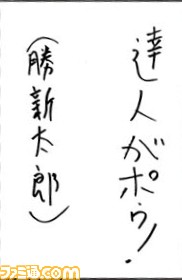 達人がポゥ！
（勝新太郎）
ファミ通.com